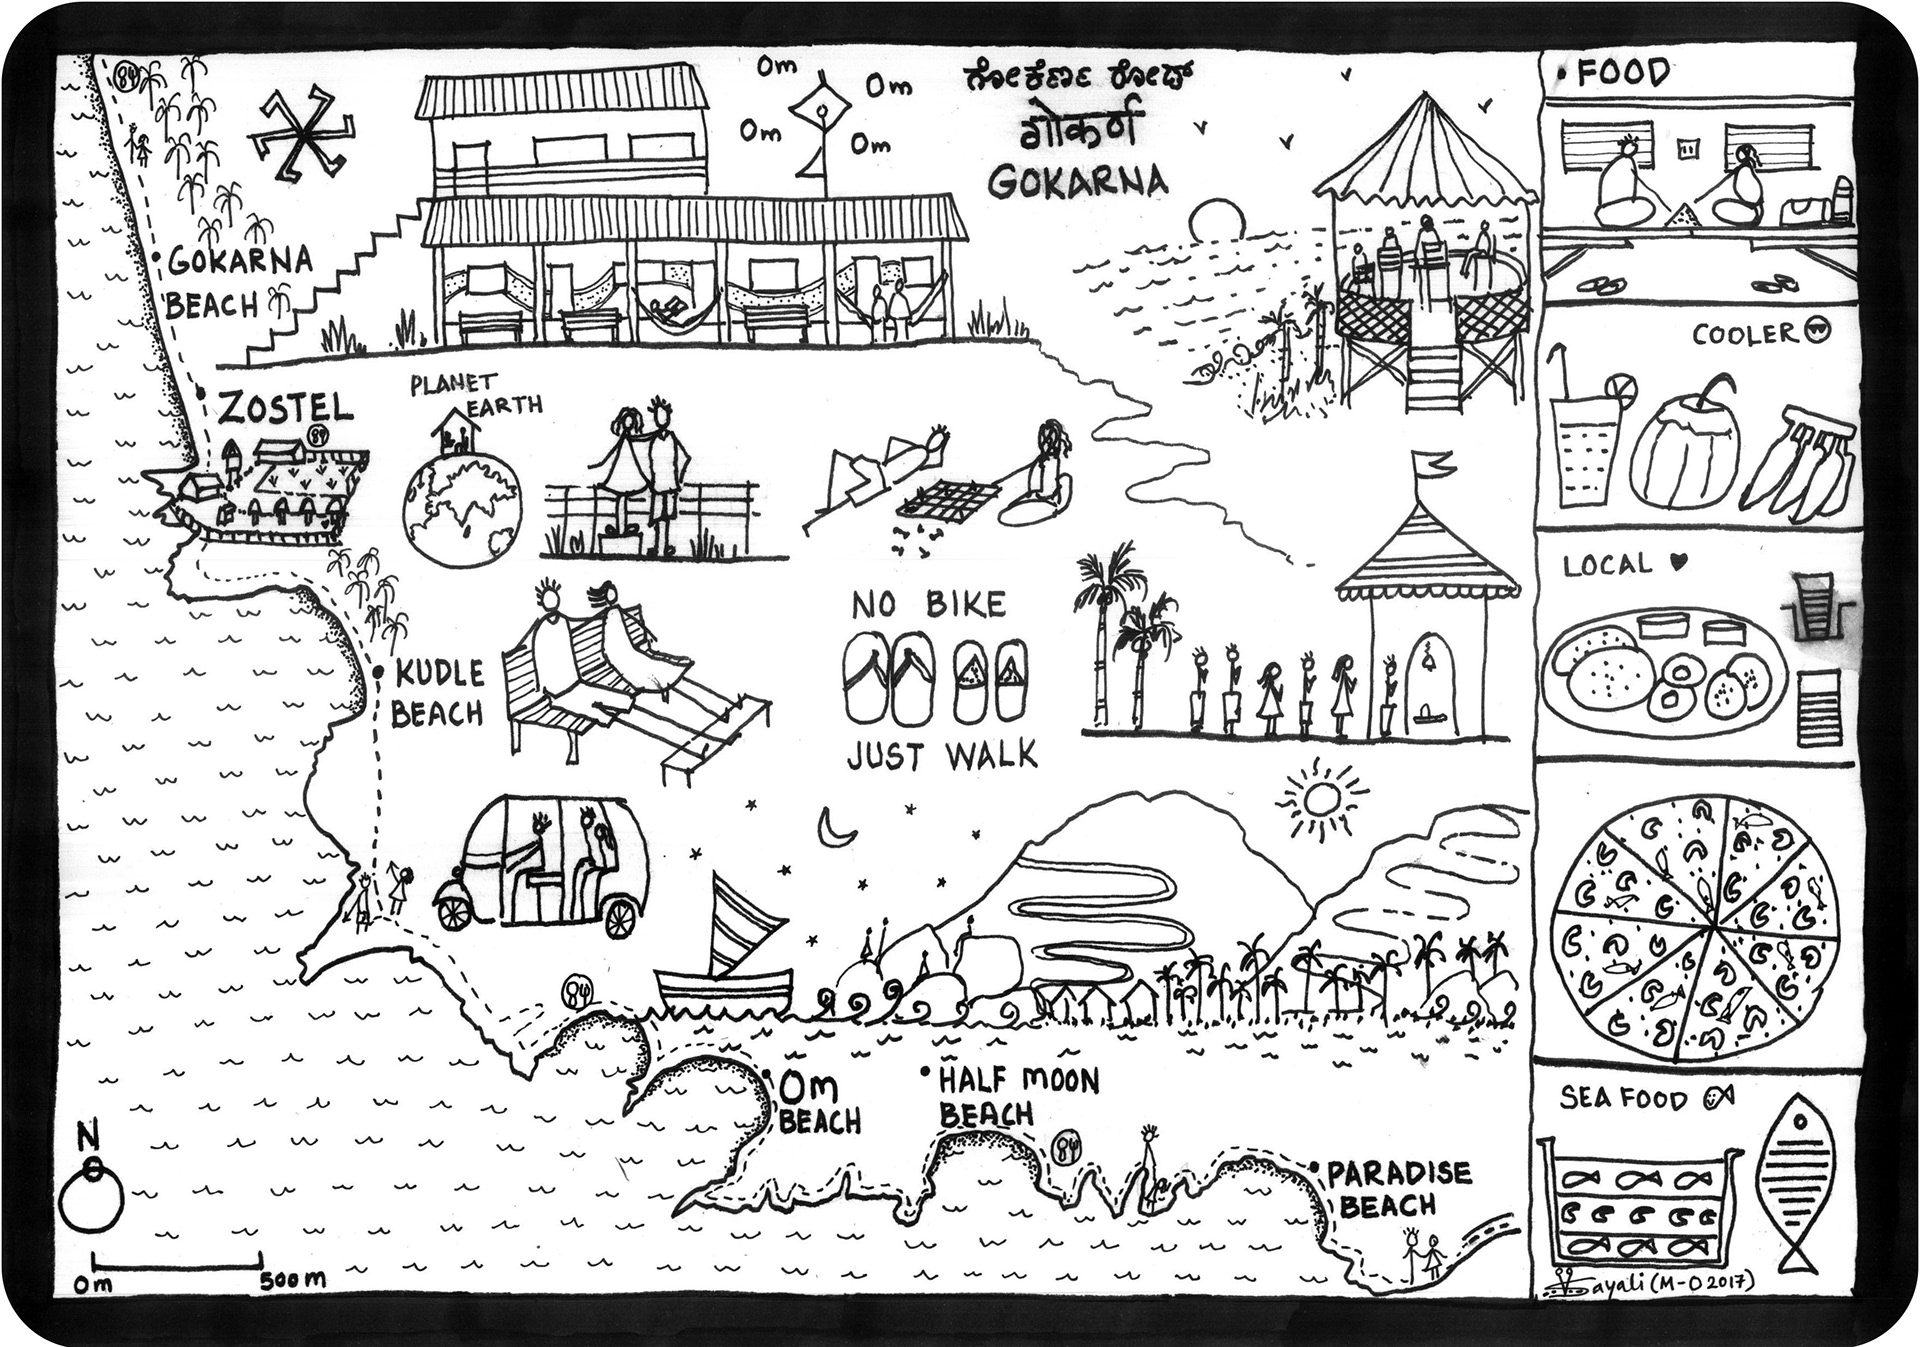 84
Om
Om
Om
Om
ಗೋಕರ್ಣ ರೋಡ್
गोकर्ण
GOKARNA
GOKARNA
BEACH
ZOSTEL
84
PLANET
EARTH
KUDLE
BEACH
NO BIKE
JUST WALK
84
Om
BEACH
HALF MOON
BEACH
84
PARADISE
BEACH
N
0m
500m
• FOOD
COOLER
LOCAL ♥
SEA FOOD
Sayali (M-O 2017)